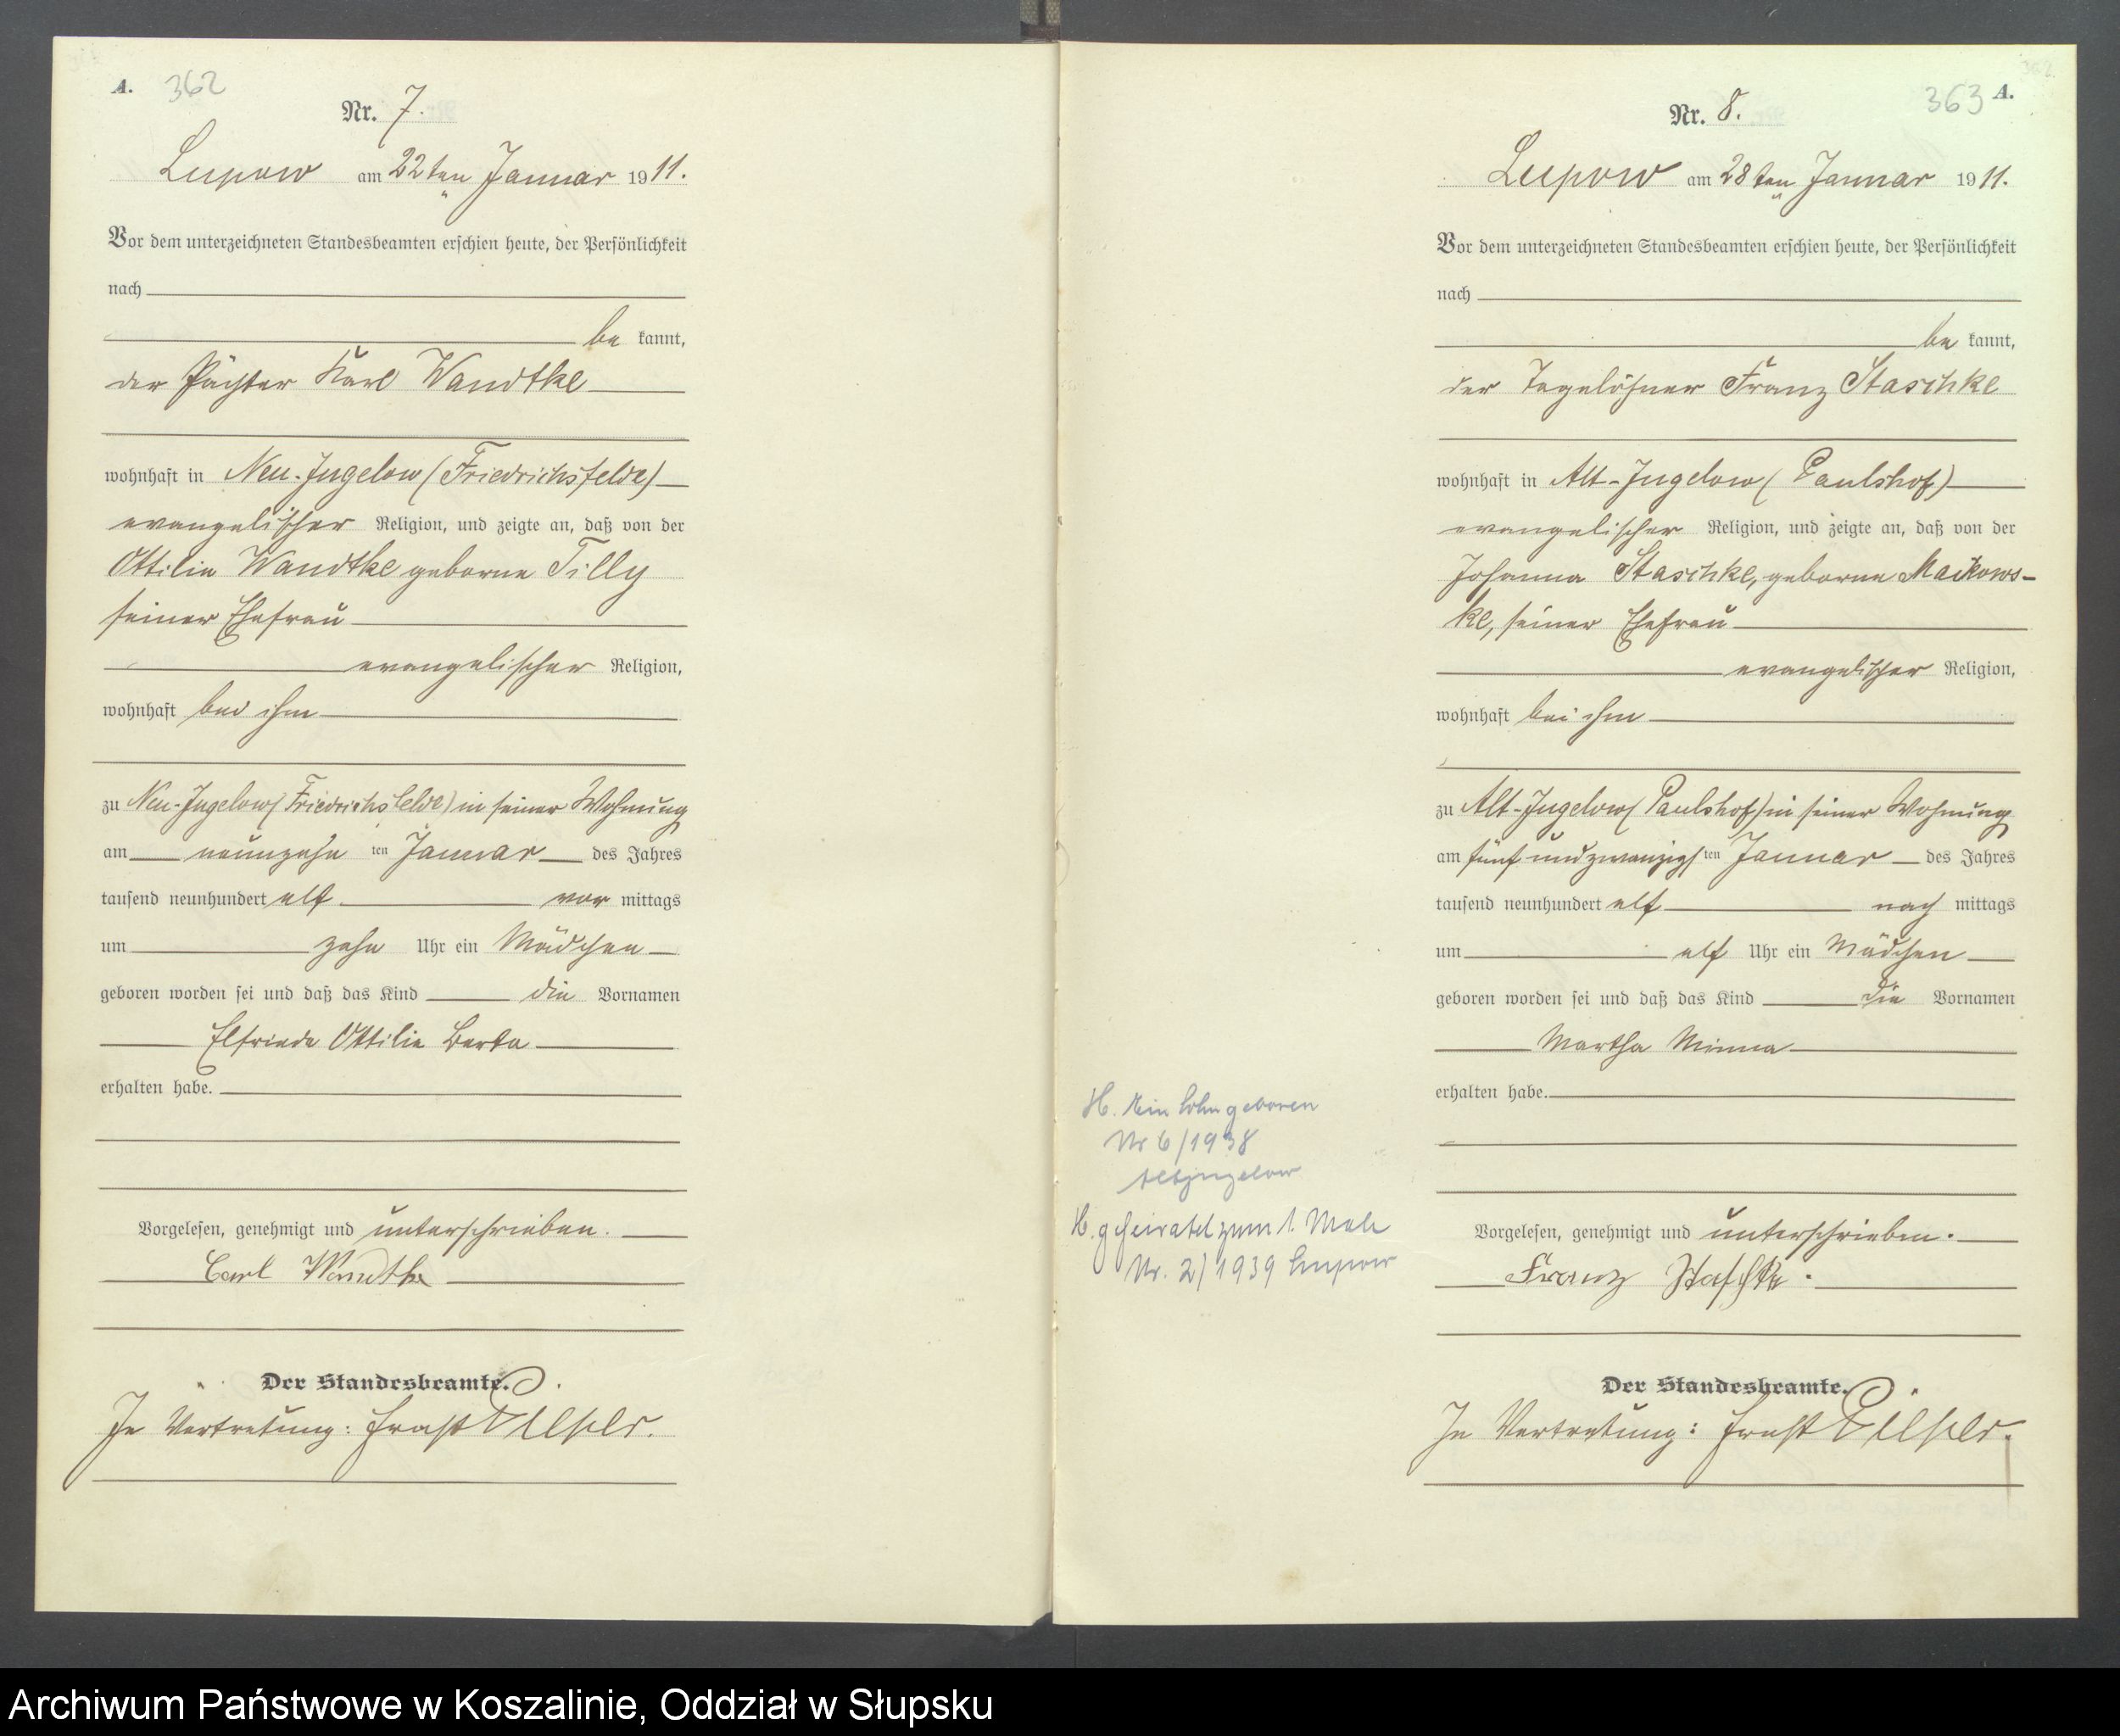 A. 362
Nr. 7.
Lupow am 22ten Januar 1911.
Vor dem unterzeichneten Standesbeamten erschien heute, der Persönlichkeit
nach
be kannt,
der Pächter Karl Wandtke
wohnhaft in Neu-Jugelow (Friedrichsfelde)
evangelischer Religion, und zeigte an, daß von der
Ottilie Wandtke geborne Tilly
seiner Ehefrau
evangelischer Religion,
wohnhaft bei ihm
zu Neu-Jugelow (Friedrichsfelde) in seiner Wohnung
am neunzehn ten Januar des Jahres
tausend neunhundert elf vor mittags
um zehn Uhr ein Mädchen
geboren worden sei und daß das Kind die Vornamen
Elfriede Ottilie Berta
erhalten habe.
Vorgelesen, genehmigt und unterschrieben.
Carl Wandtke
Der Standesbeamte.
In Vertretung: Ernst
363 A.
Nr. 8.
Lupow am 28ten Januar 1911.
Vor dem unterzeichneten Standesbeamten erschien heute, der Persönlichkeit
nach
be kannt,
der Tagelöhner Franz Staschke
wohnhaft in Alt-Jugelow (Paulshof)
evangelischer Religion, und zeigte an, daß von der
Johanna Staschke, geborne Maikows-
ke, seiner Ehefrau
evangelischer Religion,
wohnhaft bei ihm
zu Alt-Jugelow (Paulshof) in seiner Wohnung
am fünf und zwanzigs ten Januar des Jahres
tausend neunhundert elf nach mittags
um elf Uhr ein Mädchen
geboren worden sei und daß das Kind die Vornamen
Martha Minna
erhalten habe.
H. Ein Sohn geboren
Nr 6/1938
Altjugelow
H. geheiratet zum 1. Male
Nr. 2/1939 Lupow
Vorgelesen, genehmigt und unterschrieben.
Franz Staschke.
Der Standesbeamte.
In Vertretung: Ernst
Archiwum Państwowe w Koszalinie, Oddział w Słupsku